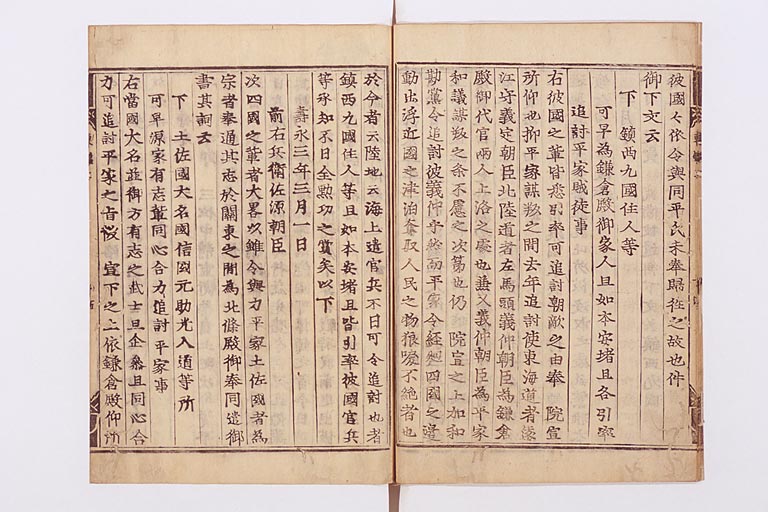 彼國々依令與同平氏未奉歸往之故也件
御下文云
下　鎮西九國住人等
可早為鎌倉殿御家人且如本安堵且各引率
追討平家賊徒事
右彼國之輩皆悉引率可追討朝敵之由奉　院宣
所仰也抑平家謀叛之間去年追討使東海道者遠
江守義定朝臣北陸道者左馬頭義仲朝臣為鎌倉
殿御代官兩人上洛之處也兼又義仲朝臣為平家
和議謀叛之条不慮之次第也仍　院宣之上加私
勘黨令追討彼義仲乎然而平家令經廻四國之邊
動出浮近國之津泊奪取人民之物狼唳不絶者也
於今者云陸地云海上遣官兵不日可令追討也者
鎮西九國住人等且如本安堵且皆引率彼國官兵
等承知不日全勲功之賞矣以下
壽永三年三月一日
前右兵衛佐源朝臣
次四國之輩者大畧以雖令與力平家土佐國者為
宗者奉通其志於關東之間為北條殿御奉同遣御
書其詞云
下　土佐國大名國信國元助光入道等所
可早源家有志輩同心合力追討平家事
右當國大名並御方有志之武士且企参且同心合
力可追討平家之旨被　宣下之上依鎌倉殿仰所